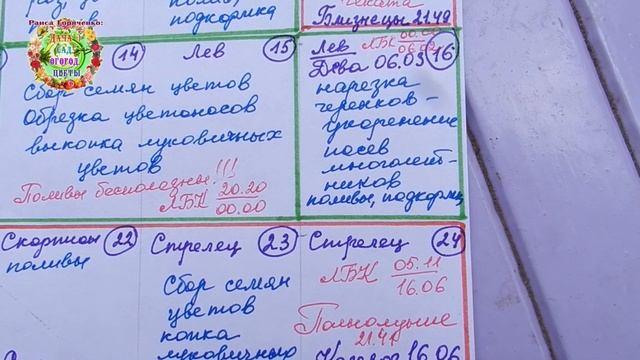 Раиса Горяченко:
ДАЧА
САД
ОГОРОД
ЦВЕТЫ
полив,
подкормка
Близнецы 21.49
14 Лев 15
Сбор семян цветов
Обрезка цветоносов
выкопка луковичных
цветов
Поливы бесполезны!!!
ЛБК 20.20
00.00
Лев ЛБК 00.00
06.03
Дева 06.03 16
нарезка
черенков -
укоренение
посев
многолет-
ников
поливы, подкормка
Скорпион 22
поливы
Стрелец 23
Сбор семян
цветов
копка
луковичных
Стрелец 24
ЛБК 05.11
16.06
Полнолуние
21.41
16.06